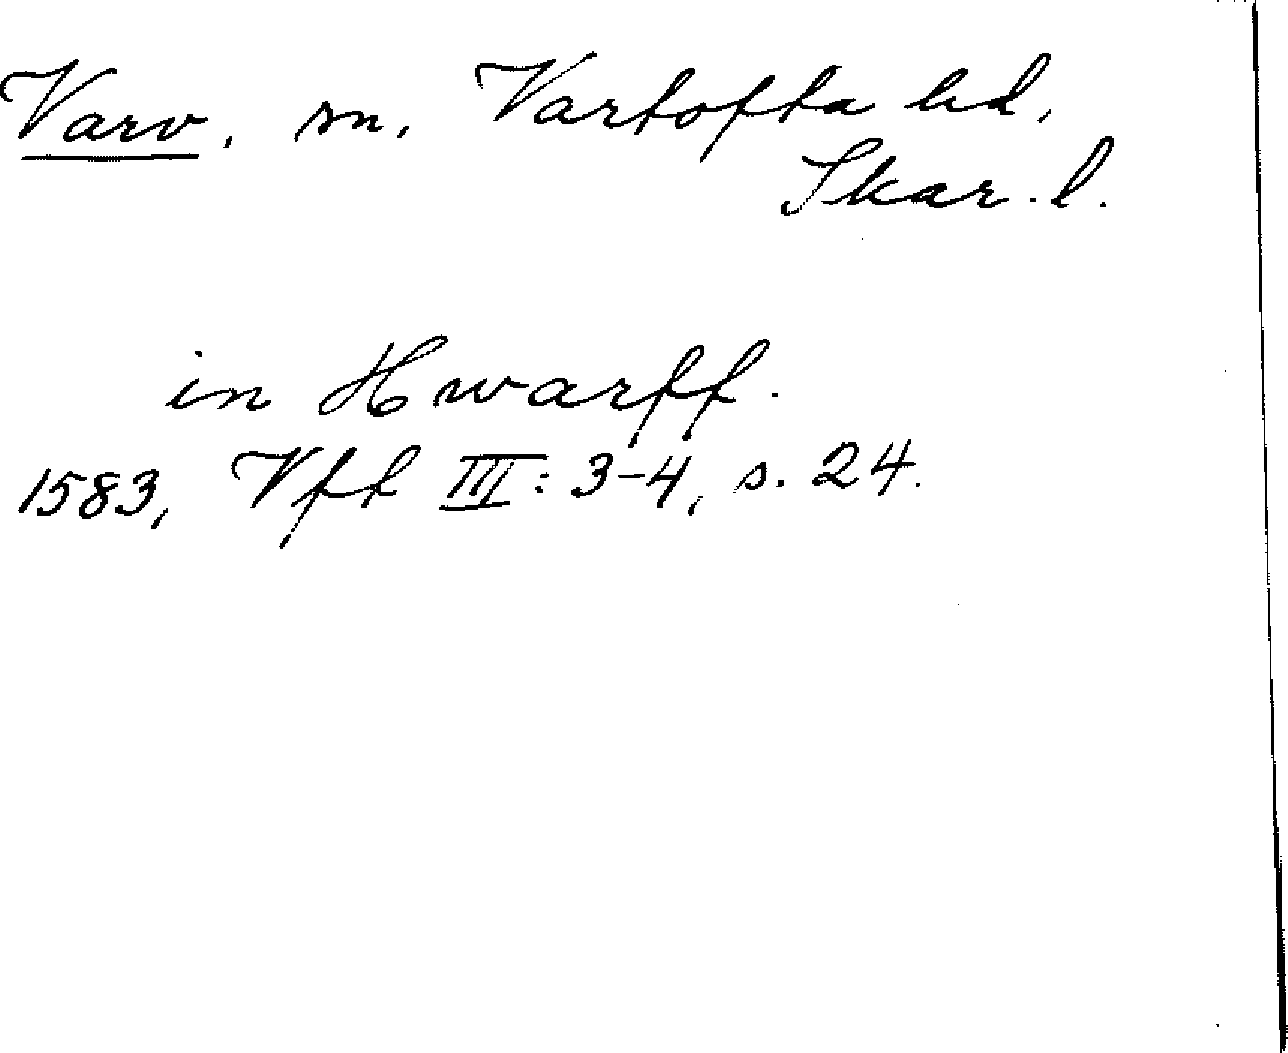 Varv, sn, Vartofta hd,
Skar. l.
in Hwarff.
1583, Vft III: 3-4, s. 24.